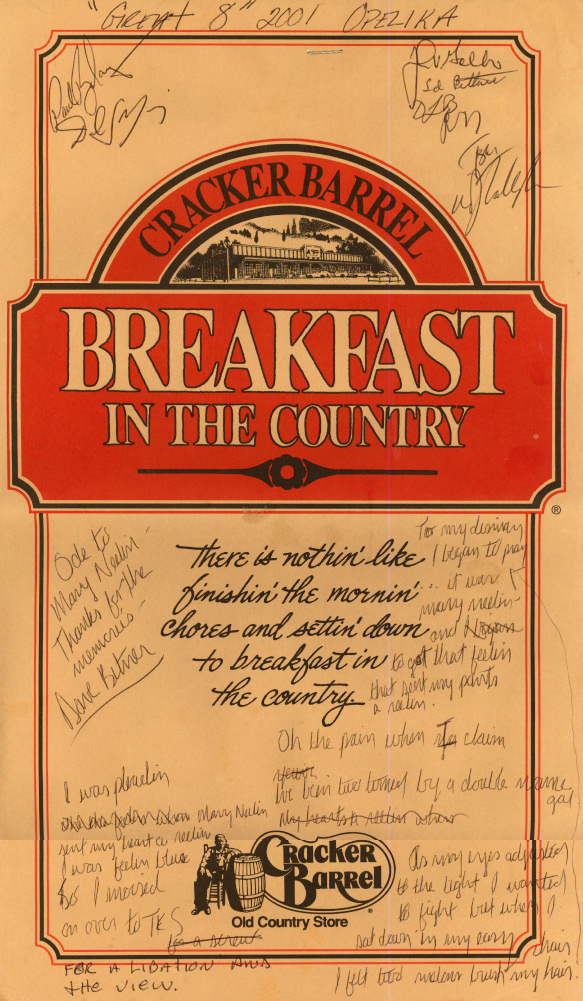 "GREAT 8" 2001 OPELIKA
CRACKER BARREL
BREAKFAST
IN THE COUNTRY
®
Ode to
Mary Neelin -
Thanks for the
memories -
Dave Bitner
There is nothin' like
finishin' the mornin'
chores and settin' down
to breakfast in
the country
To my dismay
I began to pray
it was
mary neelin-
and
to get that feelin
that sent my pants
a reelin.
Oh the pain when I claim
I've been two timed by a double name
gal
I was pleadin
Mary Neelin
sent my heart a reelin
I was feelin blue
So I moseed
on over to TK'S
for a
FOR A LIBATION AND
THE VIEW.
As my eyes adjusted
to the light I wanted
to fight but when I
sat down in my easy chair
I felt two melons brush my hair!
Cracker
Barrel
®
Old Country Store